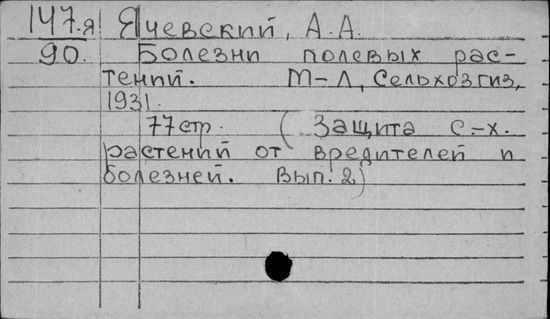 147.я Ячевский, А.А.
90. Болезни полевых рас-
тений. М-Л, Сельхозгиз,
1931.
77 стр. (Защита с-х.
растений от вредителей и
болезней. Вып. 2)